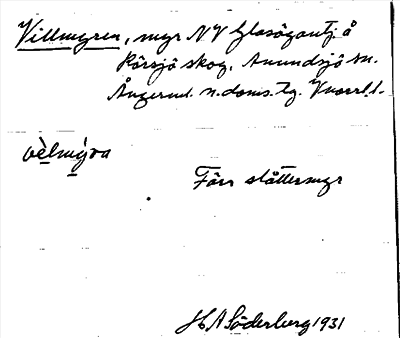 Villmyren, myr NV Glasögontj. å
Rörsjö skog, Anundsjö sn.
Ångerml. n. doms. tg. Vnorrl. l.
vèlmýra
Förr slåttermyr
H A Söderberg 1931